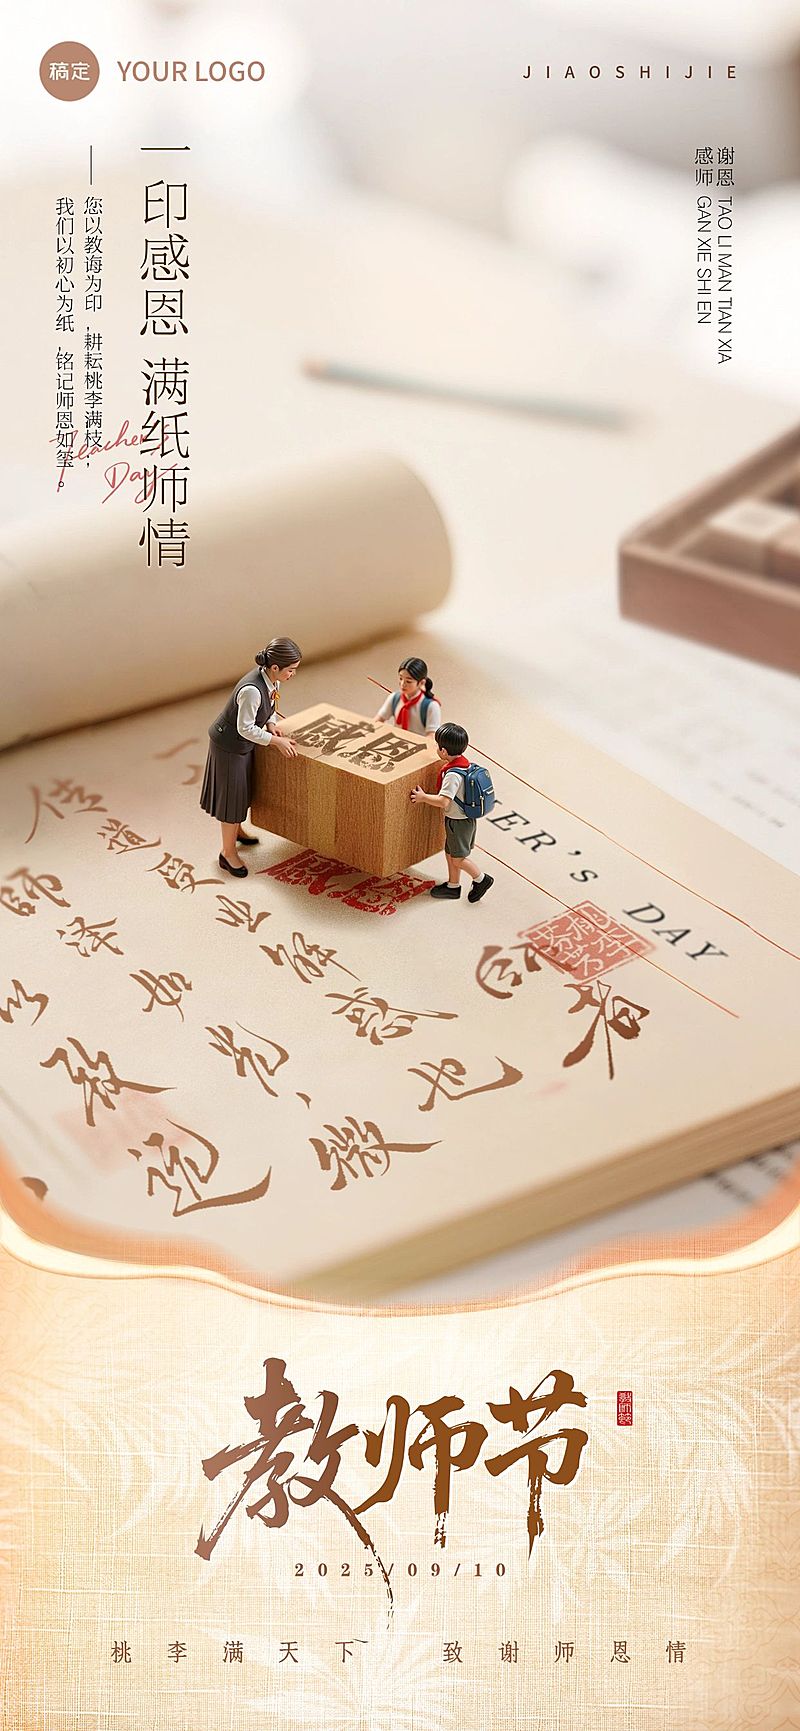 稿定 YOUR LOGO
JIAOSHIJIE
一印感恩 满纸师情
——您以教诲为印，耕耘桃李满枝；
我们以初心为纸，铭记师恩如玺。
Teacher's
Day
谢恩 TAO LI MAN TIAN XIA
感师 GAN XIE SHI EN
感恩
感恩
HER'S DAY
师者
传道受业解惑也
师泽如光，微
以致远
教师节
教师节
2025/09/10
桃李满天下 致谢师恩情